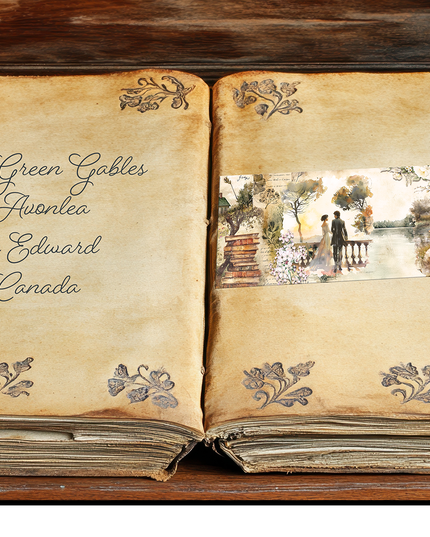 Green Gables
Avonlea
Edward
Canada